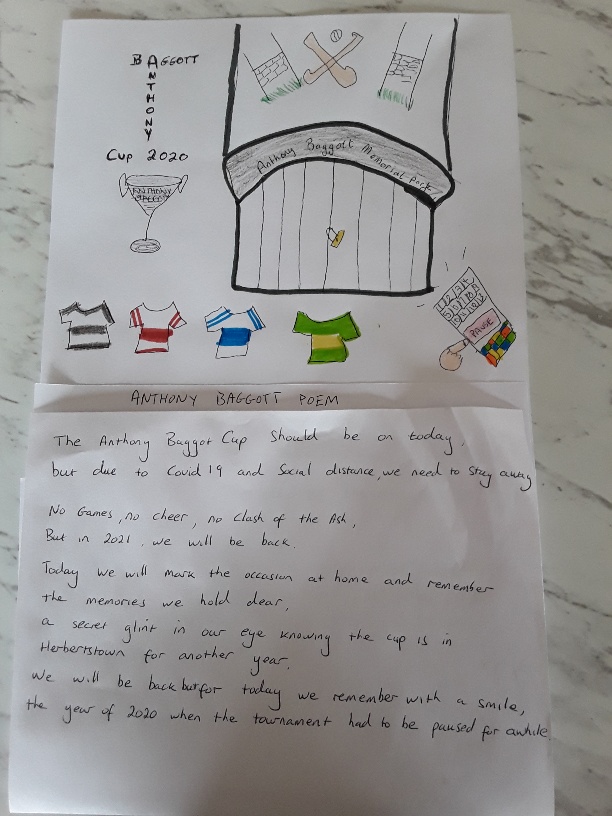 BAGGOTT
ANTHONY
Cup 2020
ANTHONY
Anthony Baggott Memorial Park
PAUSE
ANTHONY BAGGOTT POEM
The Anthony Baggot Cup should be on today,
but due to Covid 19 and Social distance, we need to stay away
No Games, no cheer, no clash of the Ash,
But in 2021, we will be back.
Today we will mark the occasion at home and remember
the memories we hold dear,
a secret glint in our eye knowing the cup is in
Herbertstown for another year.
We will be back but for today we remember with a smile,
the year of 2020 when the tournament had to be paused for awhile